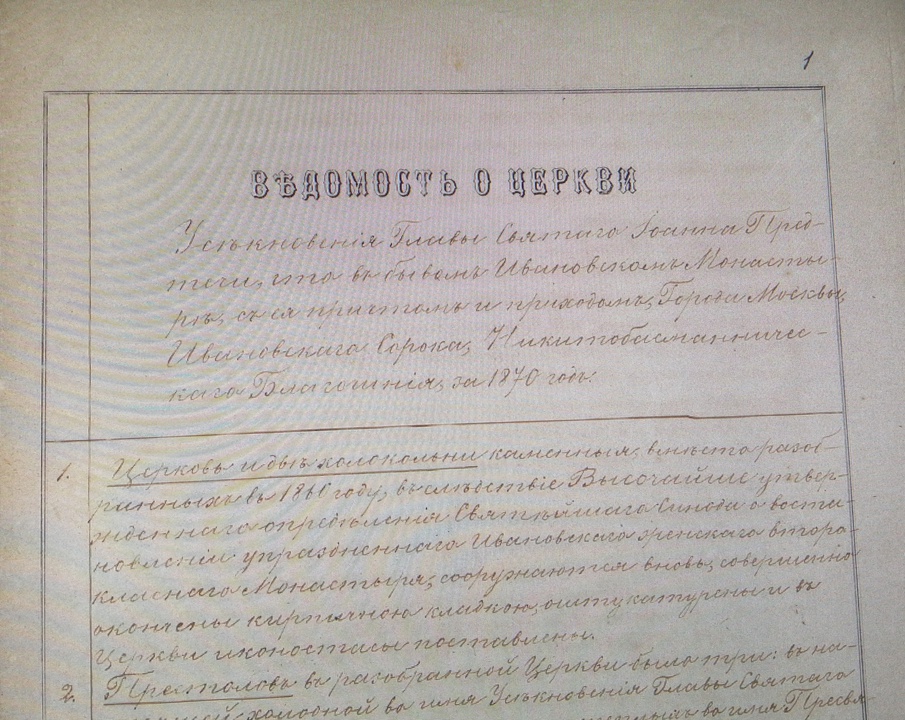 1
ВѢДОМОСТЬ О ЦЕРКВИ
Усѣкновенія Главы Святаго Іоанна Пред-
течи, что въ бывомъ Ивановскомъ Монасты-
рѣ, съ ея причтомъ и приходомъ, Города Москвы,
Ивановскаго Сорока, Никитобасманничес-
каго Благочинія, за 1870 годъ.
1. Церковь и двѣ колокольни каменныя, вмѣсто разоб-
ранныхъ въ 1860 году, въ слѣдствіе Высочайше утвер-
жденнаго опредѣленія Святѣйшаго Синода о воста-
новленіи упраздненнаго Ивановскаго женскаго второ-
класнаго Монастыря, сооружаются вновь, совершенно
окончены кирпичною кладкою, оштукатурены и въ
Церкви иконостасы поставлены.
2. Престоловъ въ разобранной Церкви было три: въ на-
холодной во имя Усѣкновенія Главы Святаго
во имя Пресвя-